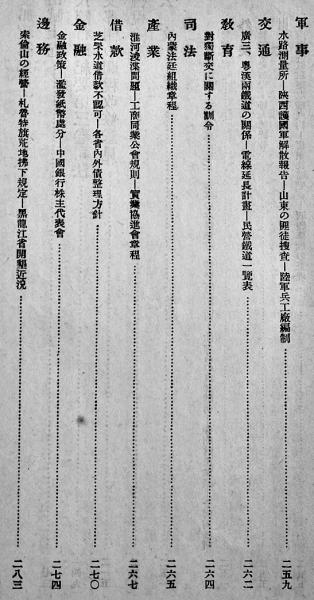 軍事
水路測量所―陝西護國軍解散報告―山東の匪徒捜査―陸軍兵工廠編制……二五九
交通
廣三、粤漢兩鐵道の關係―電線延長計畫―民營鐵道一覽表……二六二
教育
對獨斷交に關する訓令……二六四
司法
內蒙法廷組織章程……二六五
產業
淮河浚渫問題―工商同業公會規則―實業協進會章程……二六七
借款
芝罘水道借款不認可―各省內外債整理方針……二七〇
金融
金融政策―濫發紙幣處分―中國銀行株主代表會……二七四
邊務
索倫山の經營―札魯特旗荒地拂下規定―黑龍江省開墾近況……二八三